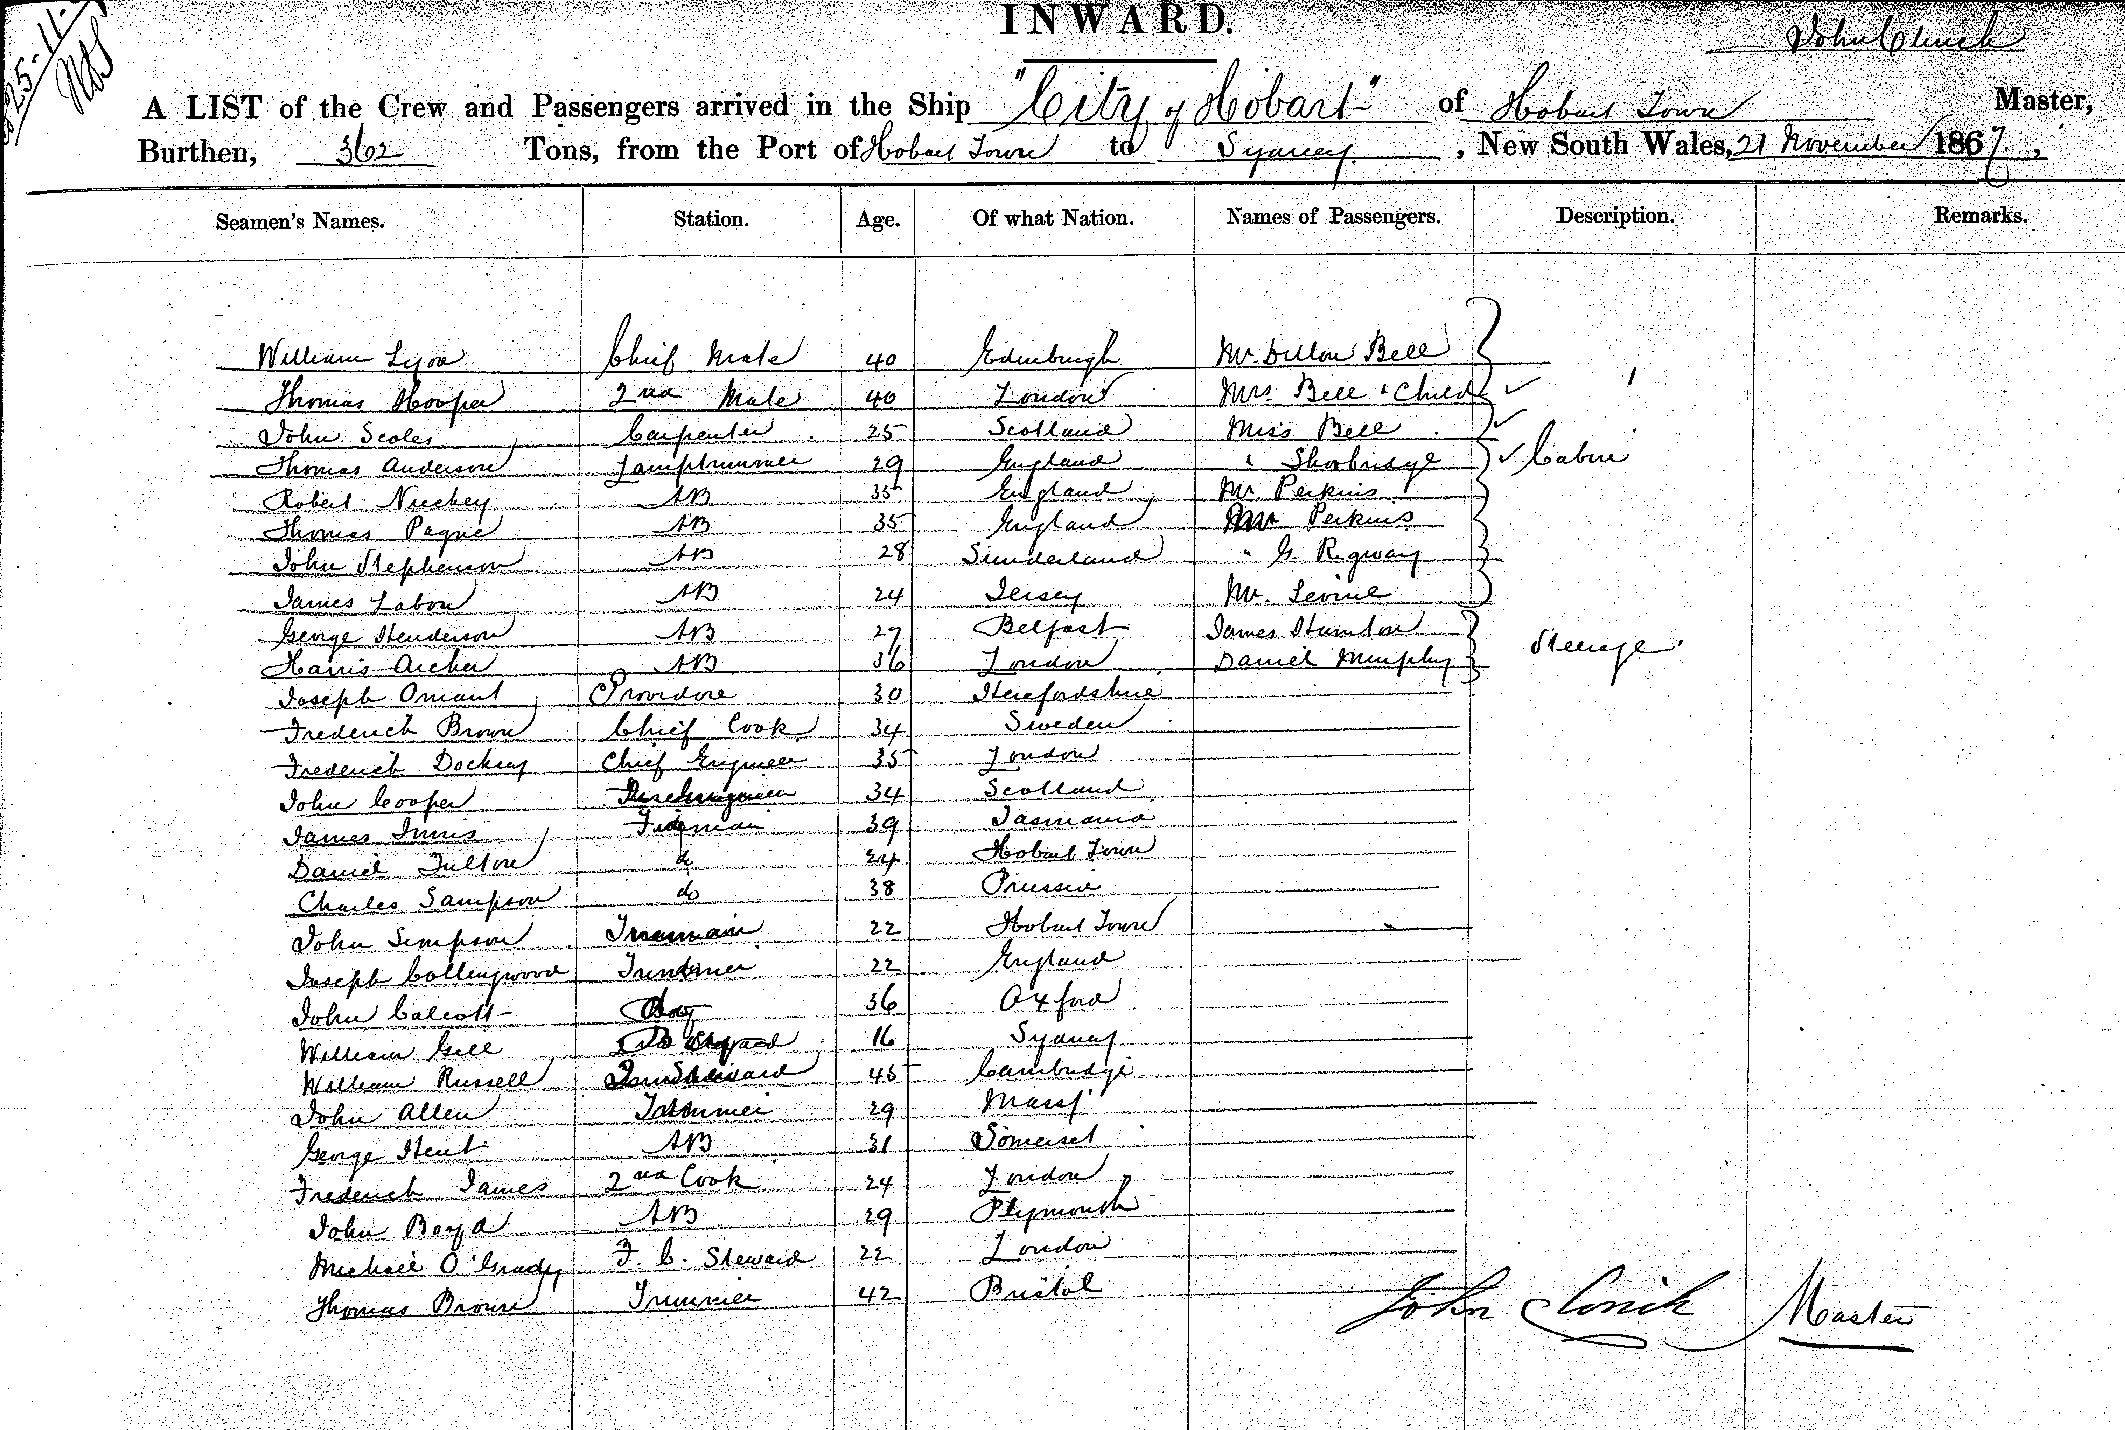 25-11-
INWARD.
John Clinch
A LIST of the Crew and Passengers arrived in the Ship "City of Hobart" of Hobart Town Master,
Burthen, 362 Tons, from the Port of Hobart Town to Sydney, New South Wales, 21 November 1867,
Seamen's Names. Station. Age. Of what Nation. Names of Passengers. Description. Remarks.
William Lyon Chief Mate 40 Edinburgh Mr. Dillon Bell
Thomas Hooper 2nd Mate 40 London Mrs Bell & Child
John Scoles Carpenter 25 Scotland Miss Bell
Thomas Anderson Lamptrimmer 29 England " Shoobridge Cabin
Robert AB 35 England Mr. Perkins
Thomas Payne AB 35 England Perkins
John Stephenson AB 28 Sunderland " G. Rigway
James Labon AB 24 Jersey Mr. Levine
George Henderson AB 27 Belfast James Steerage
Harris Archer AB 36 London Daniel Murphy
Joseph Omant Providore 30 Herefordshire
Frederick Brown Chief Cook 34 Sweden
Frederick Docksey Chief Engineer 35 London
John Cooper 34 Scotland
James Innis Fireman 39 Tasmania
Daniel Fulton do 24 Hobart Town
Charles Sampson do 38 Prussia
John Simpson 22 Hobart Town
Joseph Collingwood Trimmer 22 England
John Calcott 36 Oxford
William Gill 16 Sydney
William Russell Steward 45 Cambridge
John Allen Trimmer 29
George Hunt AB 31 Somerset
Frederick James 2nd Cook 24 London
John Boyd AB 29 Plymouth
Michael O'Grady F. C. Steward 22 London
Thomas Brown Trimmer 42 Bristol
John Clinch Master